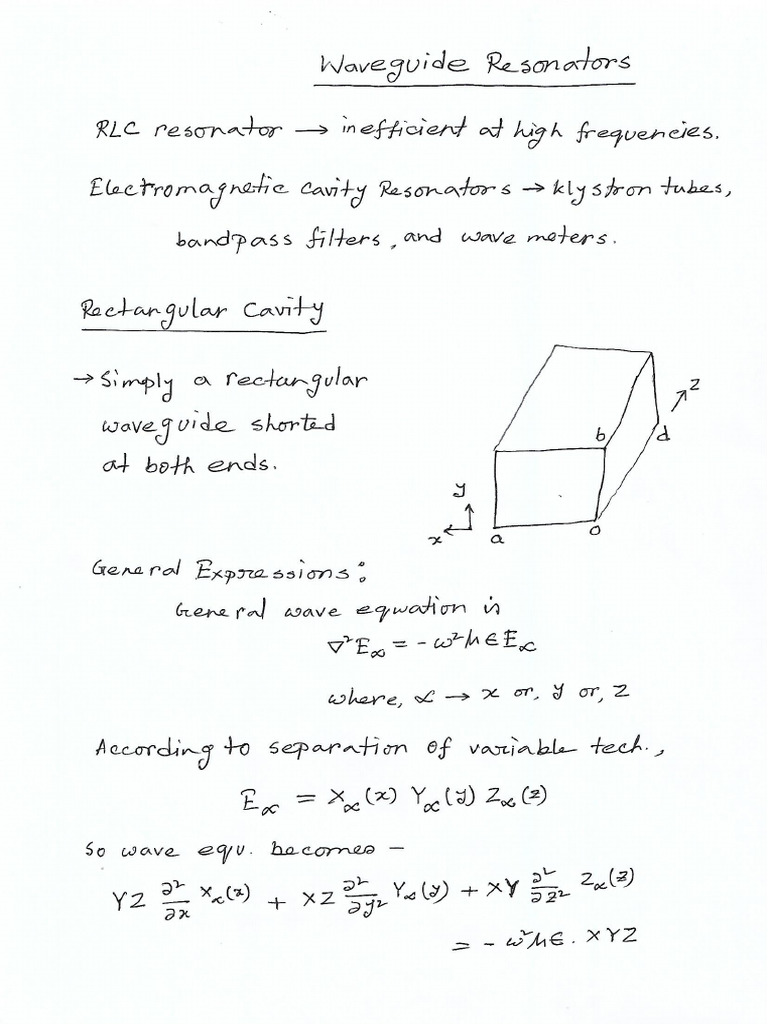 Waveguide Resonators
RLC resonator → inefficient at high frequencies.
Electromagnetic Cavity Resonators → klystron tubes,
bandpass filters, and wave meters.
Rectangular Cavity
→ Simply a rectangular
waveguide shorted
at both ends.
z
b
d
y
x
a
o
General Expressions:
General wave equation is
∇²E∝ = - ω²μ∈E∝
where, ∝ → x or, y or, z
According to separation of variable tech.,
E∝ = X∝(x) Y∝(y) Z∝(z)
So wave equ. becomes –
YZ ∂²/∂x X∝(x) + XZ ∂²/∂y² Y∝(y) + XY ∂²/∂z² Z∝(z)
= - ω²μ∈. XYZ